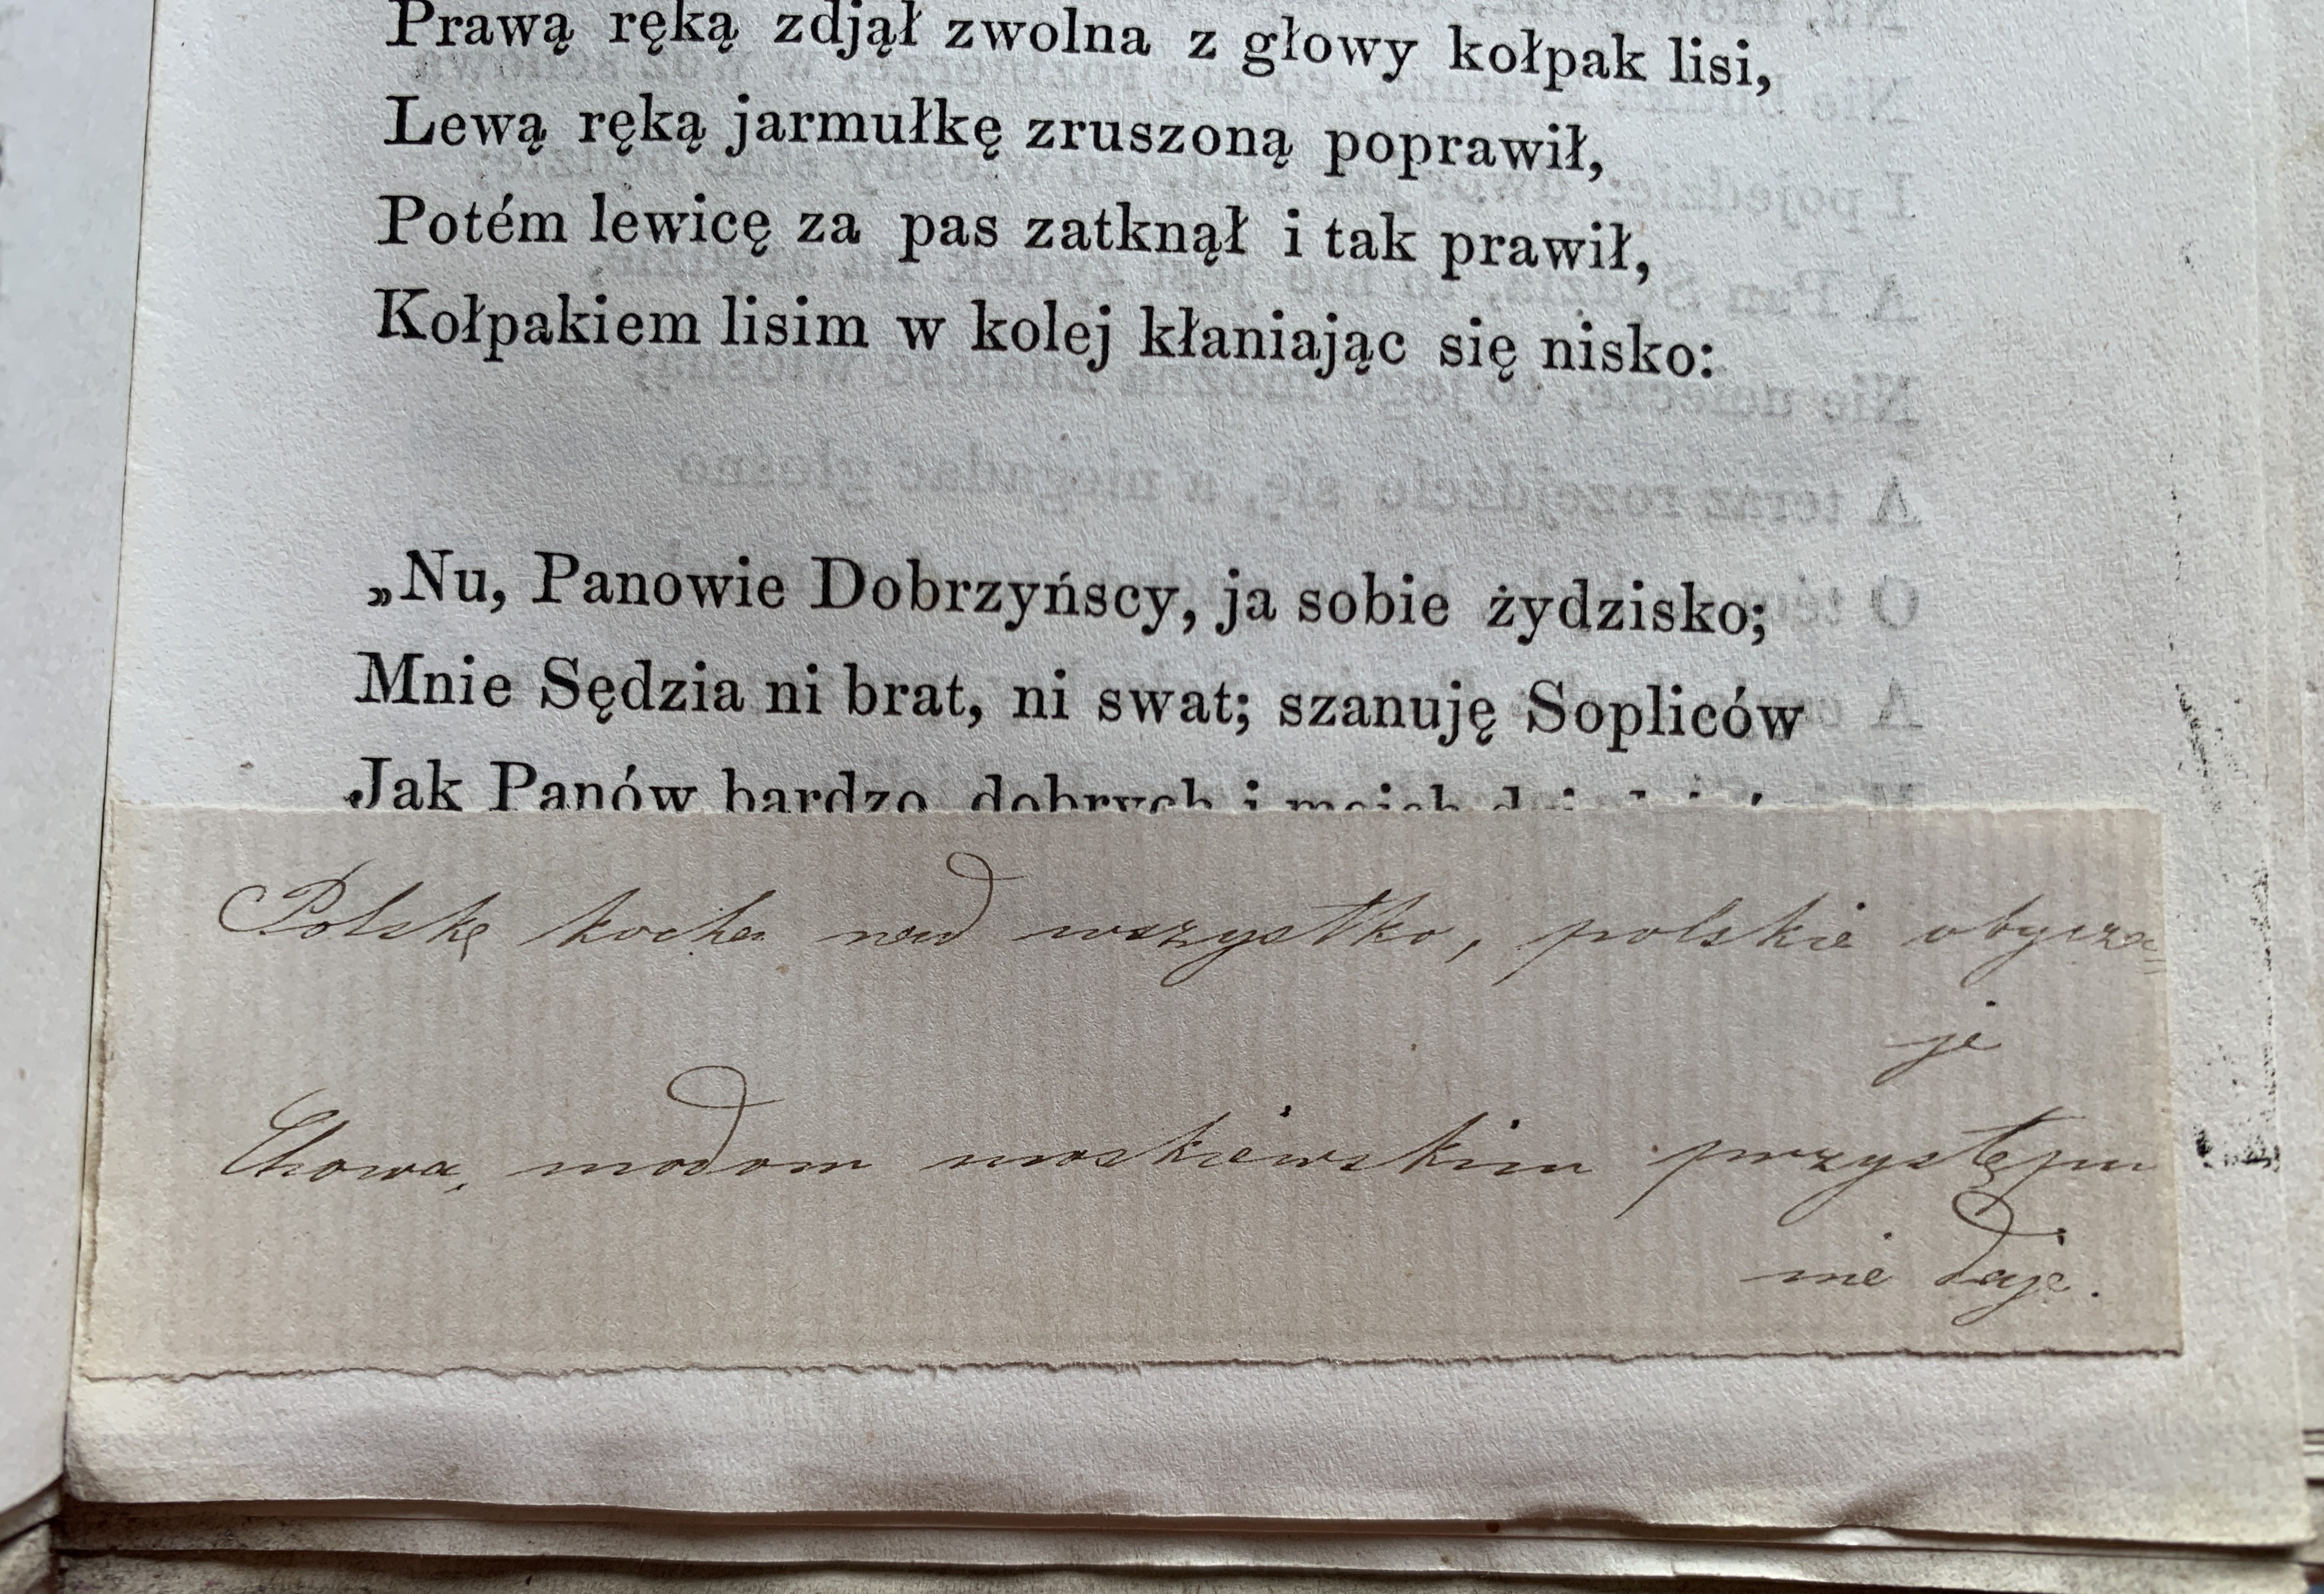 Prawą ręką zdjął zwolna z głowy kołpak lisi,
Lewą ręką jarmułkę zruszoną poprawił,
Potém lewicę za pas zatknął i tak prawił,
Kołpakiem lisim w kolej kłaniając się nisko:
„Nu, Panowie Dobrzyńscy, ja sobie żydzisko;
Mnie Sędzia ni brat, ni swat; szanuję Sopliców
Jak Panów bardzo dobrych i moich
Polskę kocha nad wszystko, polskie obycza
je
Chowa, modom moskiewskim przystępu
nie daje.